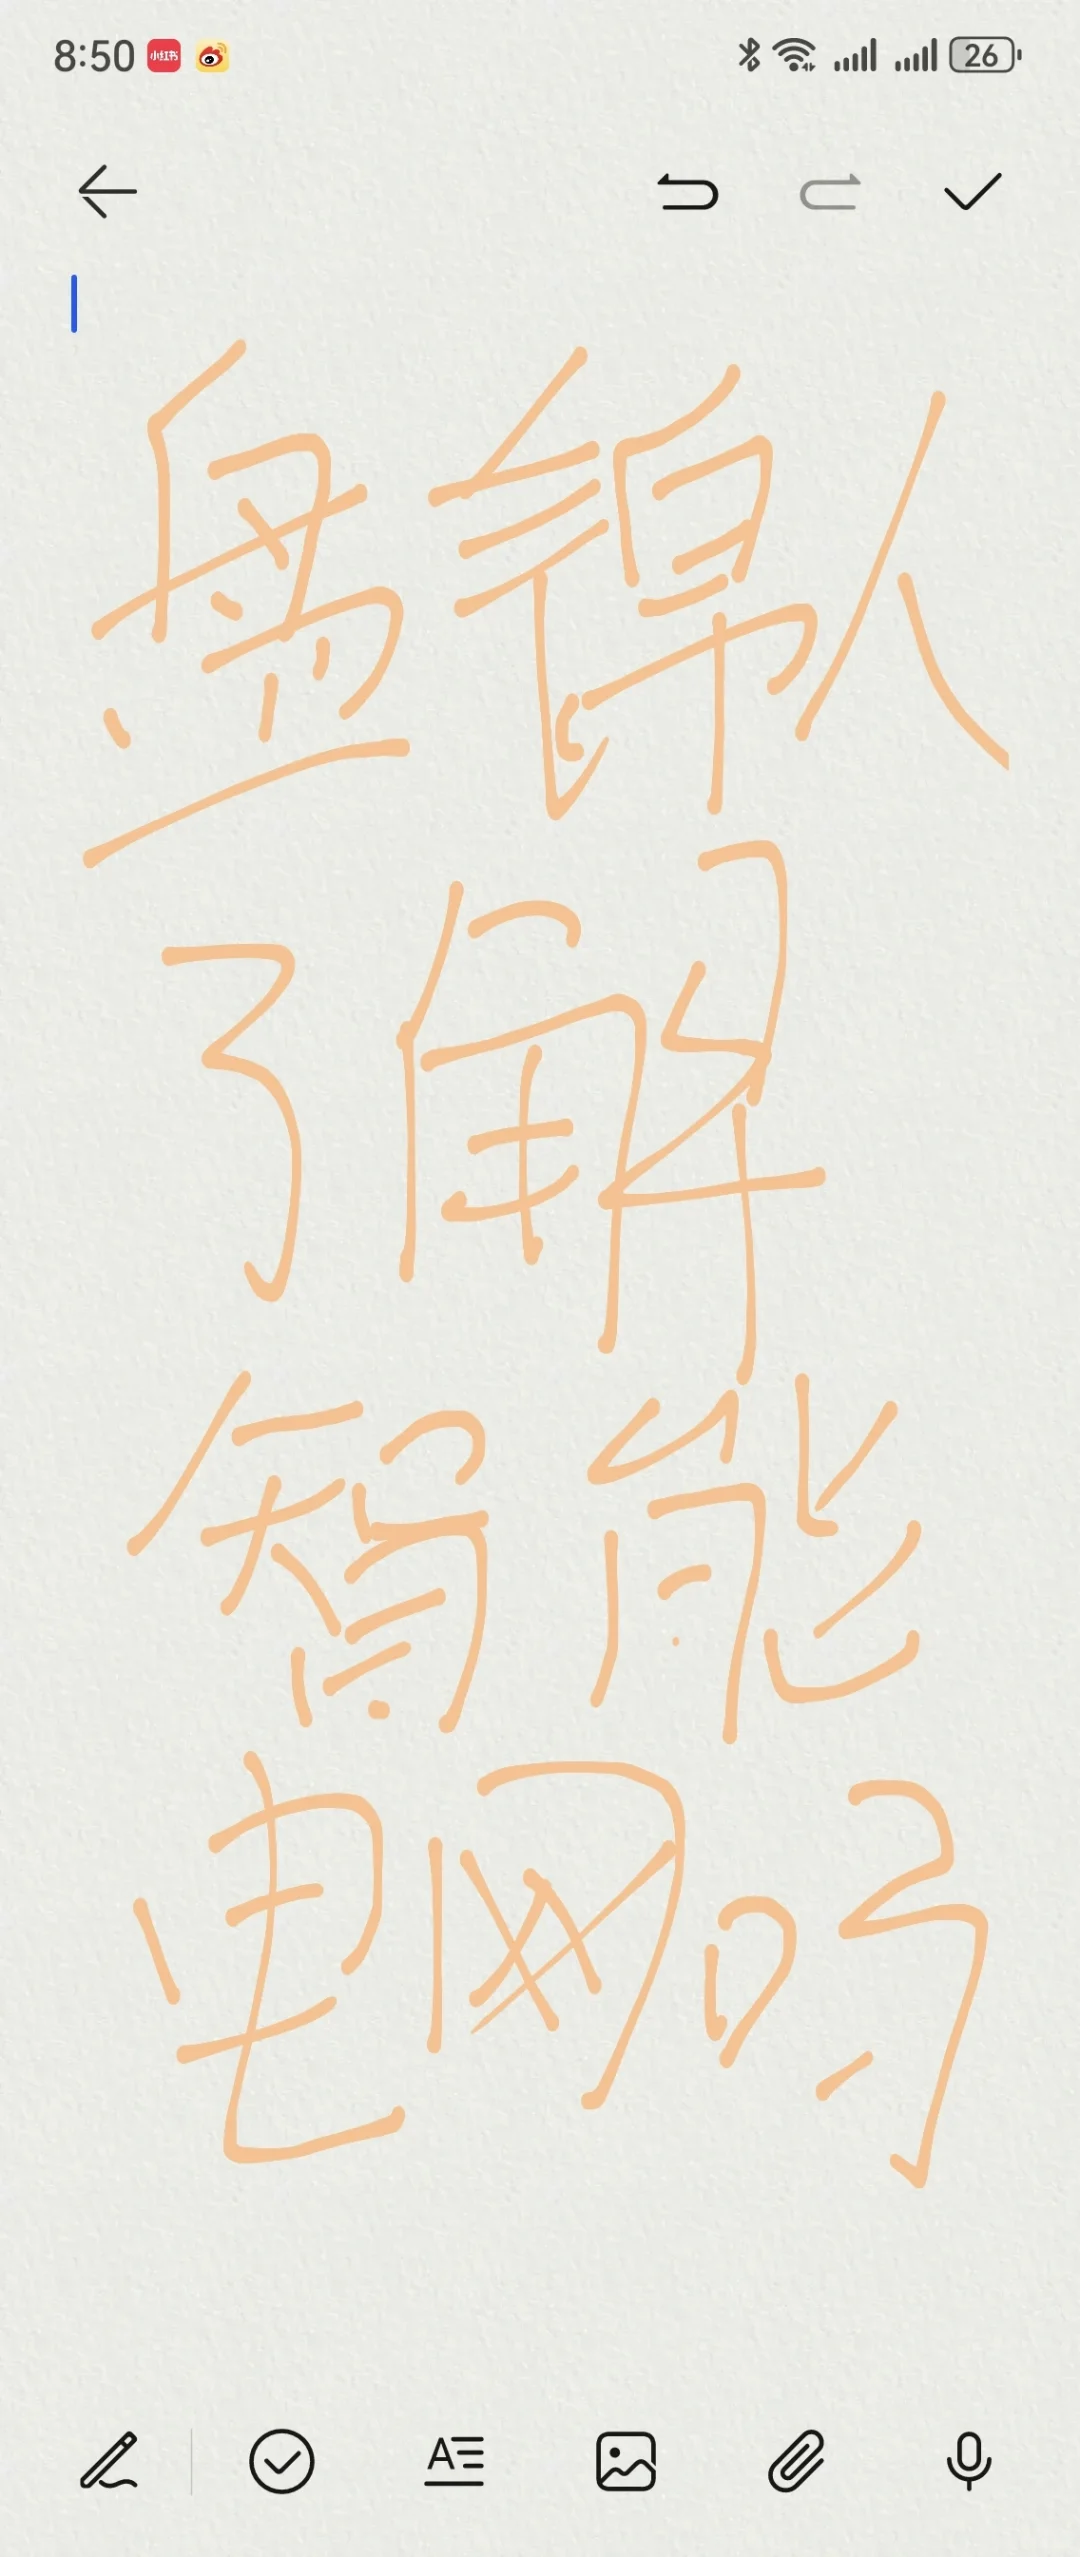 8:50 小红书 26
盘锦人
了解
智能
电网吗
A